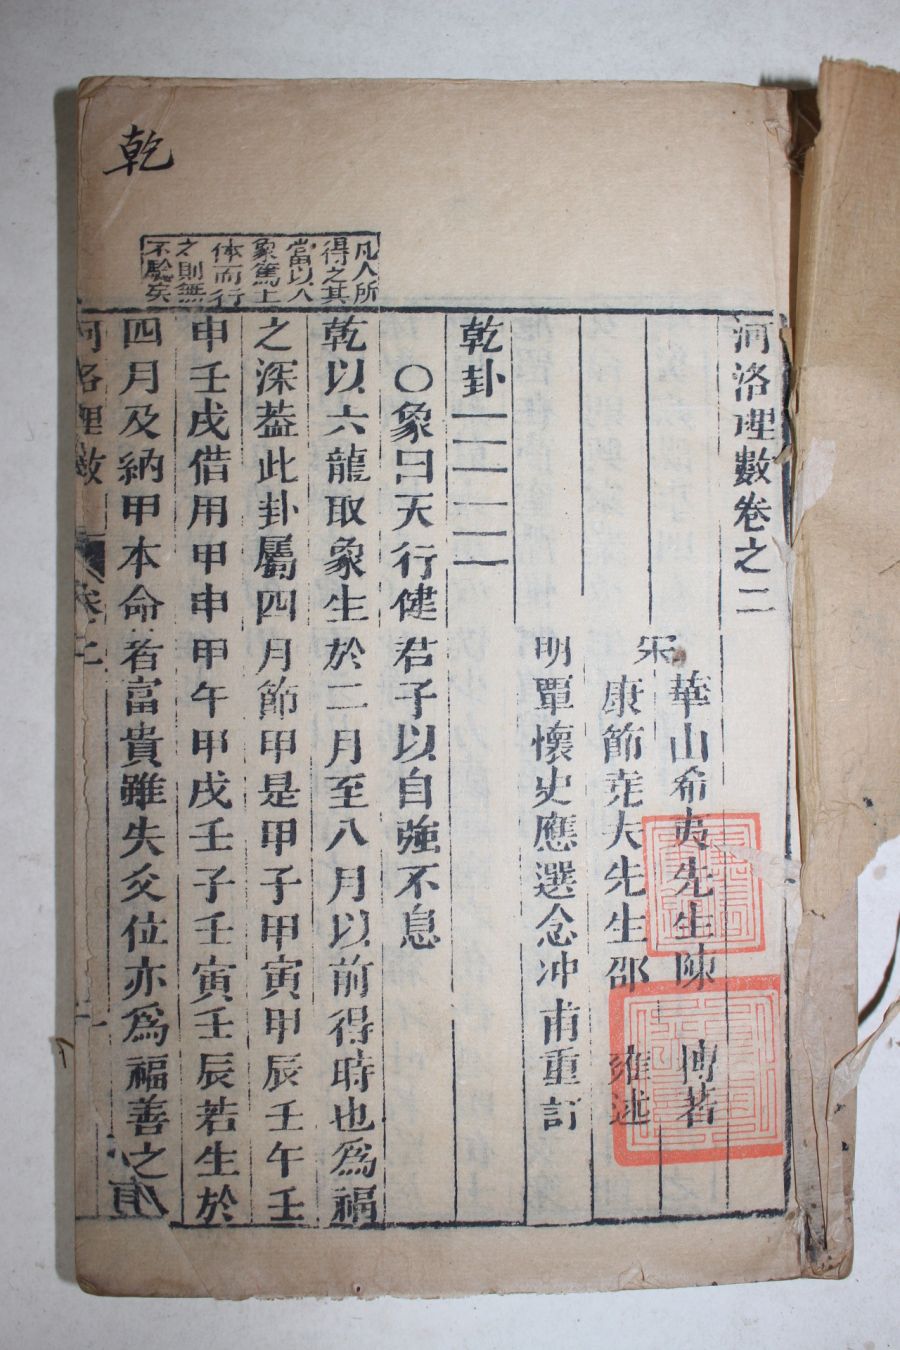 乾
凡人所
得之其
當以人
象篤上
体而行
之則無
不驗矣
河洛理數卷之二
宋
華山希夷先生陳 摶著
康節堯夫先生邵 雍述
明覃懷史應選念冲甫重訂
乾卦
○象曰天行健君子以自強不息
乾以六龍取象生於二月至八月以前得時也為福
之深葢此卦屬四月節甲是甲子甲寅甲辰壬午壬
申壬戌借用甲申甲午甲戌壬子壬寅壬辰若生於
四月及納甲本命者富貴雖失爻位亦為福善之
河洛理數 卷